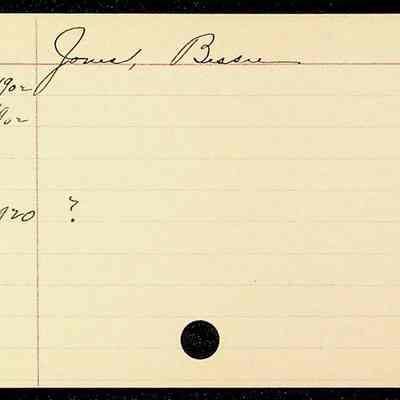 Jones, Bessie
1902
1902
1920 ?